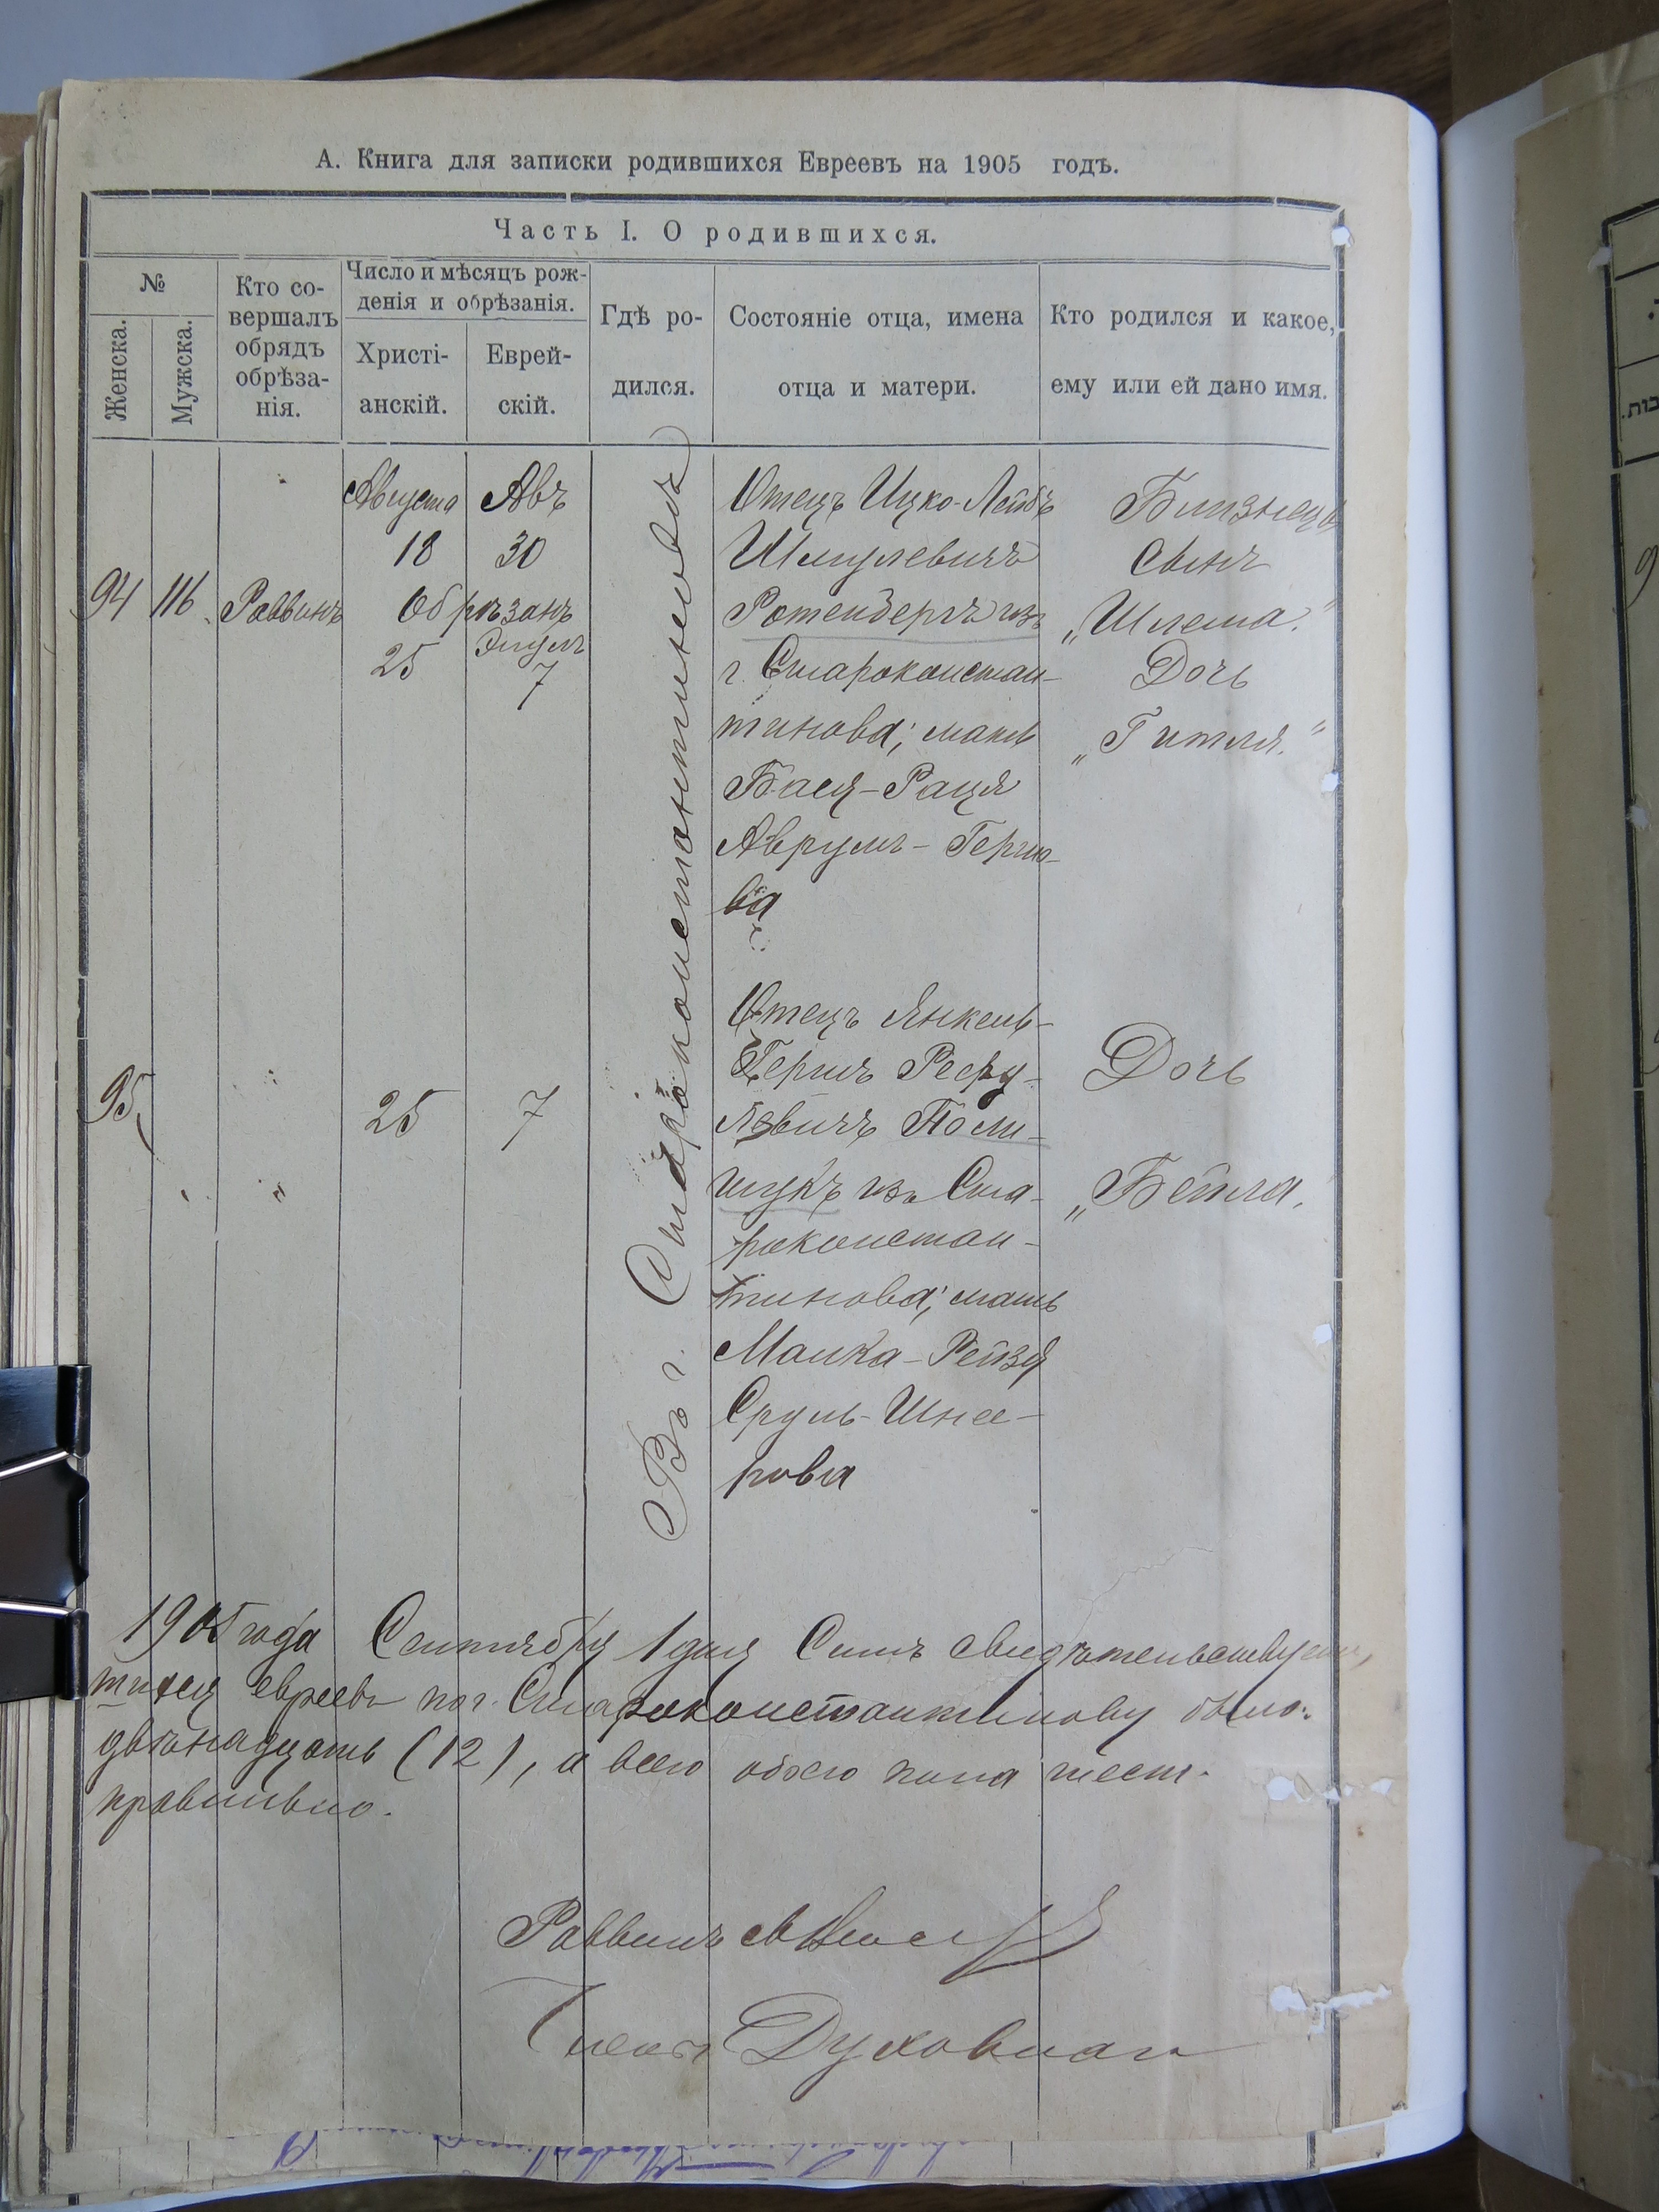 А. Книга для записки родившихся Евреевъ на 1905 годъ.
Часть I. О родившихся.
№
Женска.
Мужска.
Кто со-
вершалъ
обрядъ
обрѣза-
нія.
Число и мѣсяцъ рож-
денія и обрѣзанія.
Христі-
анскій.
Еврей-
скій.
Гдѣ ро-
дился.
Состояніе отца, имена
отца и матери.
Кто родился и какое,
ему или ей дано имя.
94 116 Раввинъ
Августа Авъ
18 30
Обрѣзанъ
25 Элулъ
7
Въ г. Староконстантиновѣ
Отецъ Ицко-Лейбъ
Шмулевичъ
Ротенбергъ изъ
г. Староконстан-
тинова; мать
Бася-Рася
Аврумъ-Герш-
ва
Близнецы
Сынъ
„Шлема."
Дочь
„Гитля."
95 " 25 7
Отецъ Янкель-
Гершъ
Поли-
щукъ изъ Ста-
роконстан-
тинова; мать
Малка-Рейзя
Сруль-Шнее-
рова
Дочь
„Бейла.
1905 года Сентября 1 дня Симъ
евреевъ по г. Староконстантинову было:
двѣнадцать (12), а всего обоего пола шест.
правильно.
Раввинъ
Членъ Духовнаго